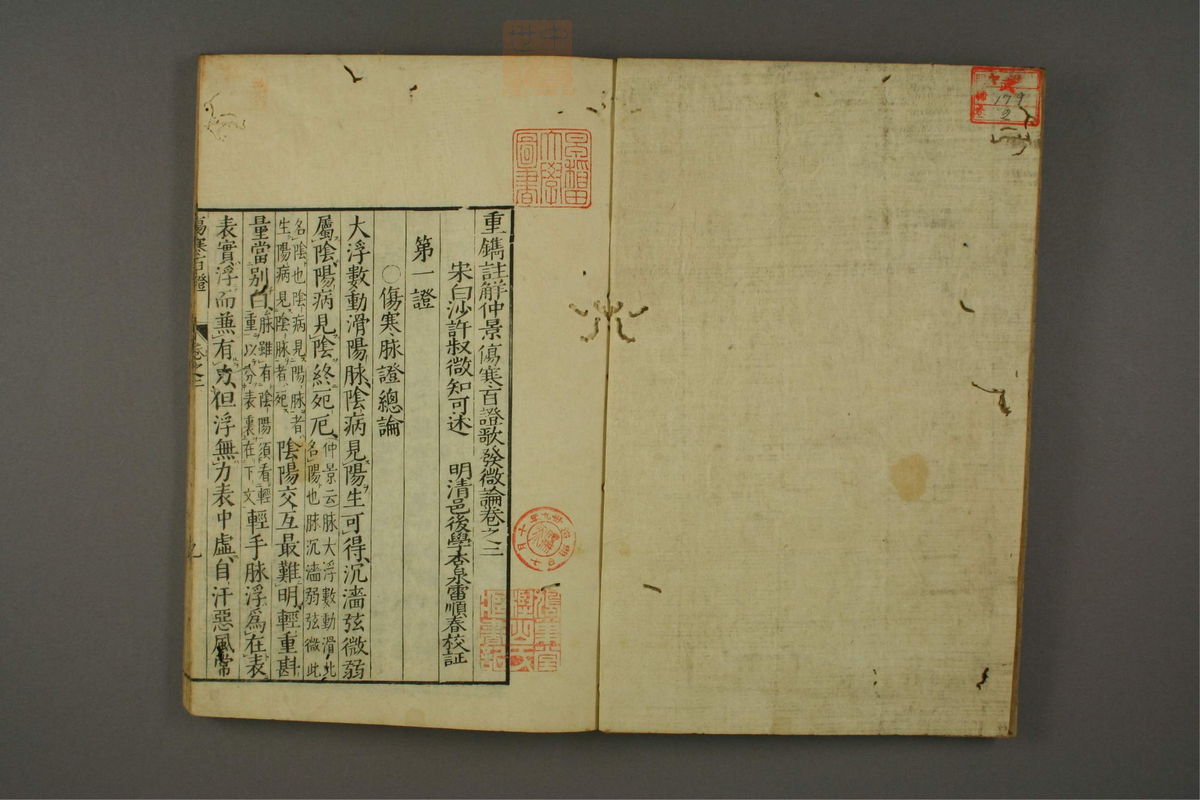 重鐫註解仲景傷寒百證歌發微論卷之二
宋白沙許叔微知可述　明清邑後學杏泉雷順春校証
第一證
○傷寒脉證總論
大浮數動滑陽脉陰病見陽生可得沉濇弦微弱
屬陰陽病見陰終死厄仲景云脉大浮數動滑此名陽也脉沉濇弱弦微此
名陰也陰病見陽脉者生陽病見陰脉者死陰陽交互最難明輕重斟
量當別白脉雖有陰陽須看輕重以分表裏在下文輕手脉浮爲在表
表實浮而兼有力但浮無力表中虛自汗惡風常
傷寒百證
卷之二
早稲田大學圖書
179
2